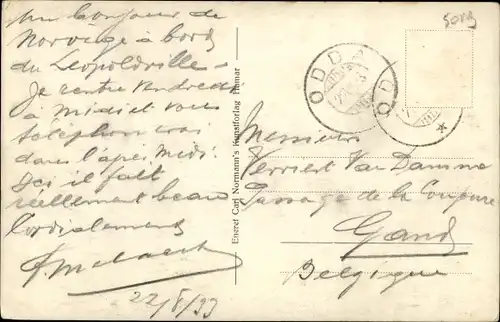 Un bonjour de
Norvège à bord
du Léopoldville
Je rentre Vendredi
à midi et vous
telephonerai
dans l'après midi.
Ici il fait
reellement beau
Cordialement
22/8/33
Eneret Carl Normann's Kunstforlag Hamar
ODDA
ODDA
Messieurs
Verriest Van Damme
Passage de la Coupure
Gand
Belgique